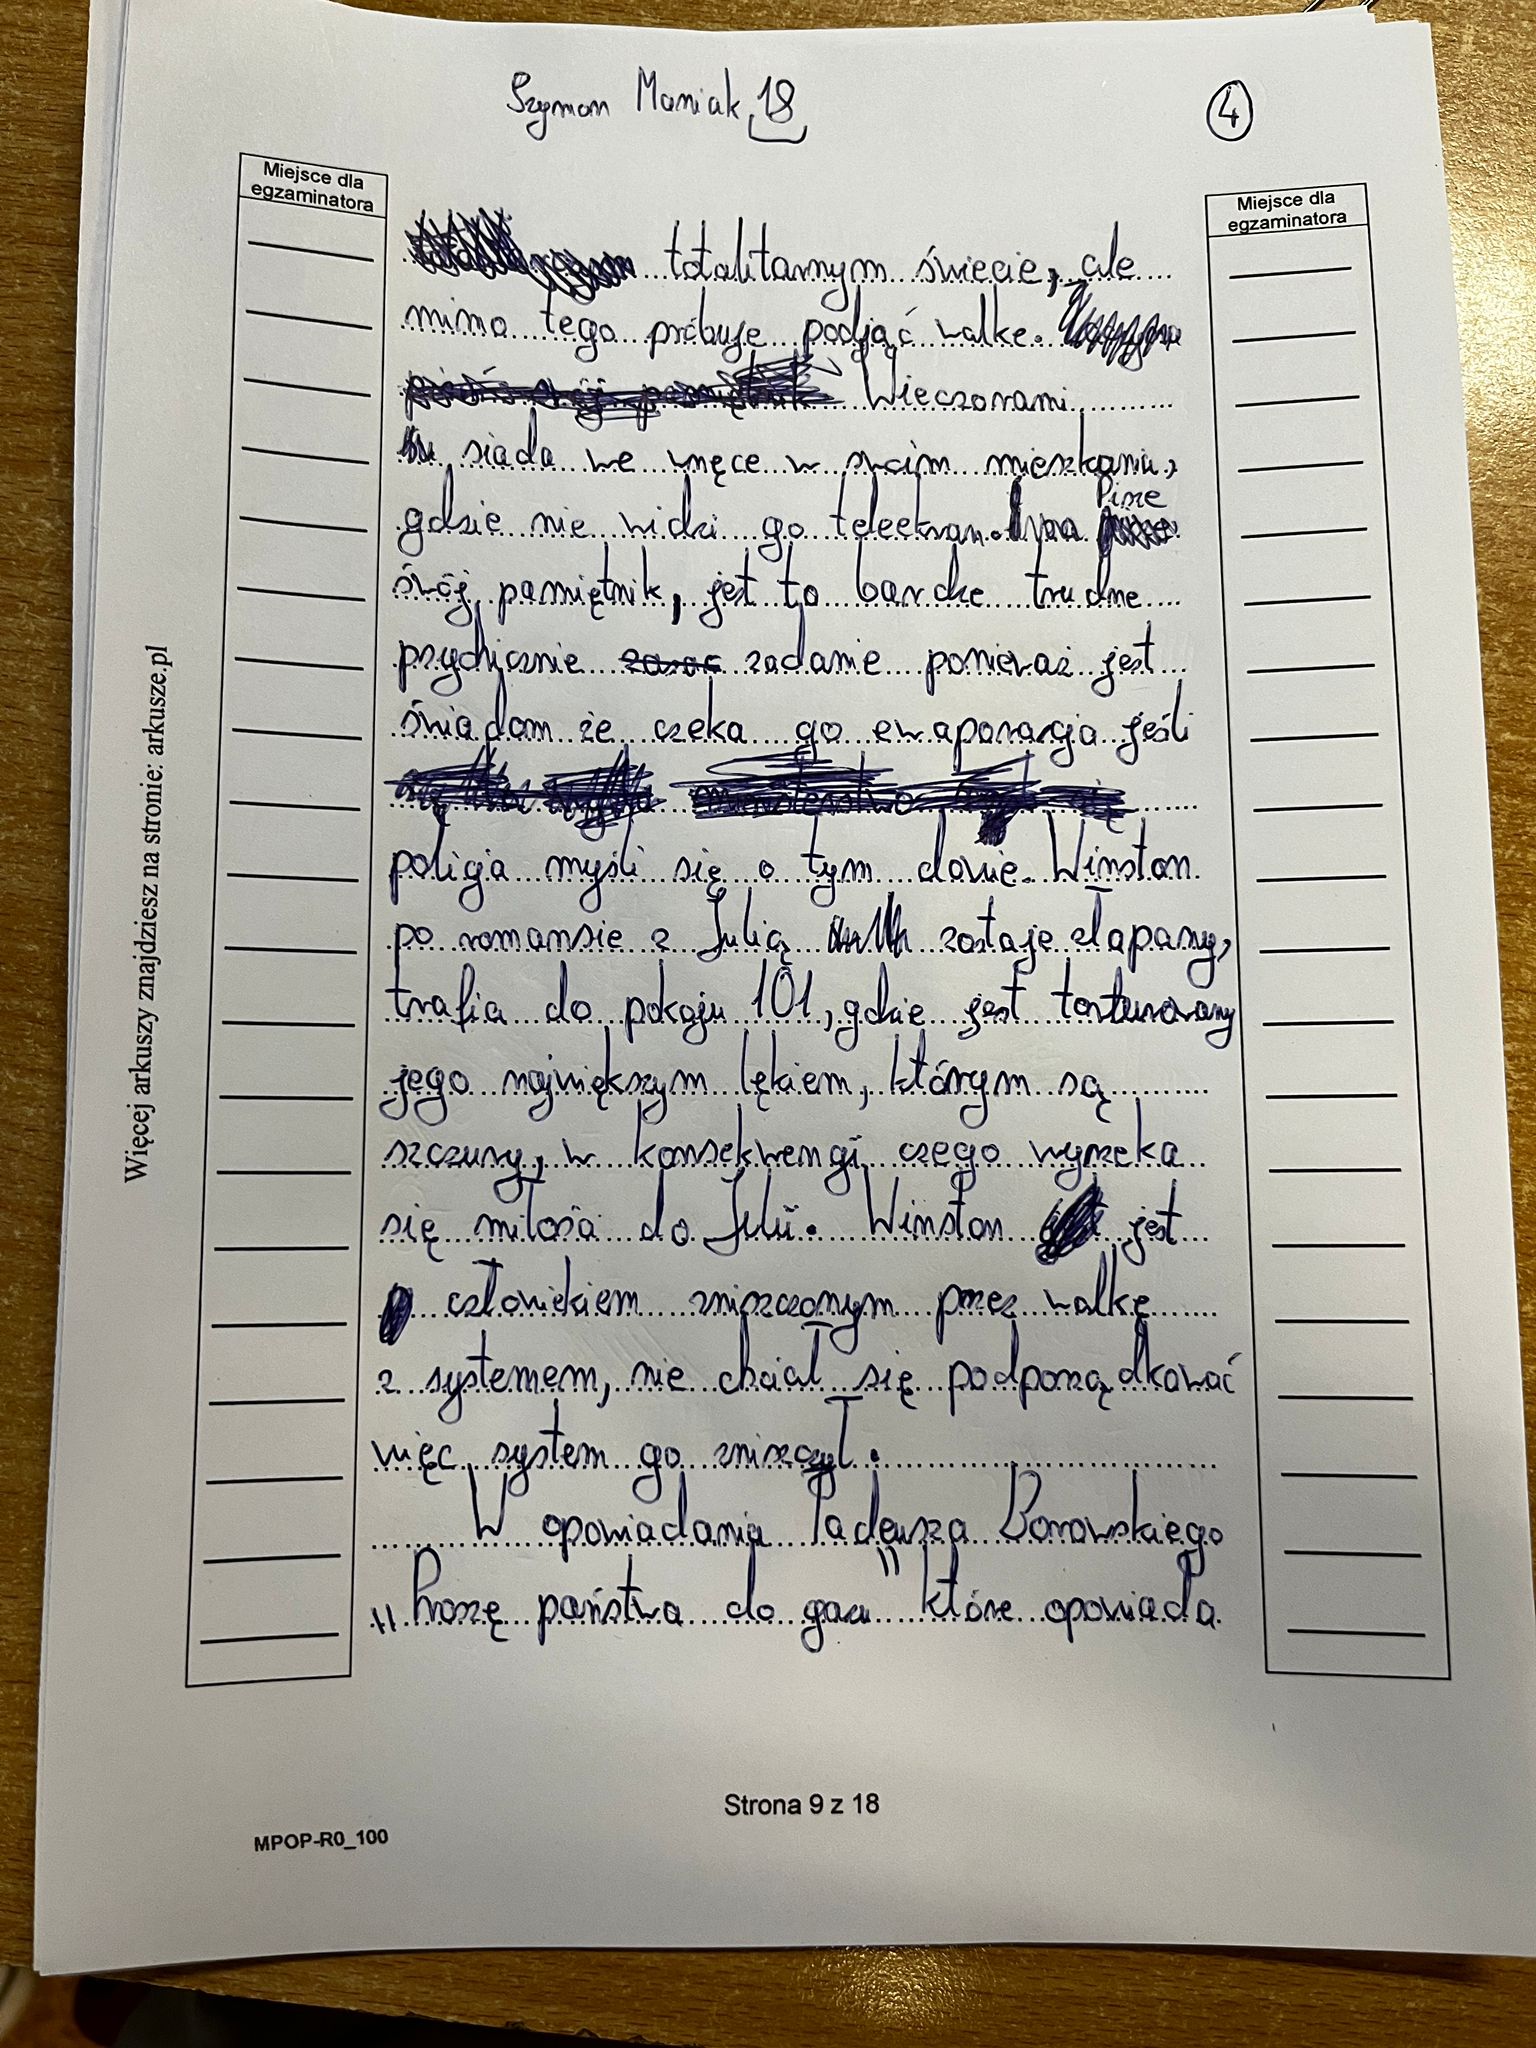 Szymon Maniak 18
4
Miejsce dla
egzaminatora
Miejsce dla
egzaminatora
totalitarnym świecie, ale
mimo tego próbuje podjąć walke.
Wieczorami
siada we wnęce w swoim mieszkaniu,
gdzie nie widzi go teleekran. Pisze
swój pamiętnik, jest to bardze trudne
psychicznie zadanie ponieważ jest
świadom że czeka go ewaporacja jeśli
policja myśli się o tym dowie. Winston
po romansie z Julią zostaje złapany,
trafia do pokoju 101, gdzie jest torturowany
jego największym lękiem, którym są
szczury, w konsekwencji czego wyrzeka
się miłości do Julii. Winston jest
człowiekiem zniszczonym przez walkę
z systemem, nie chciał się podporządkować
więc system go zniszczył.
W opowiadaniu Tadeusza Borowskiego
"Proszę państwa do gazu" które opowiada
Więcej arkuszy znajdziesz na stronie: arkusze.pl
Strona 9 z 18
MPOP-R0_100